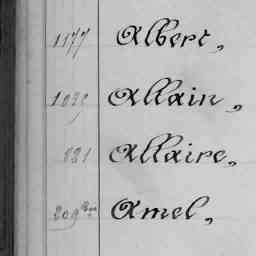 1177 Albert,
1030 Allain,
821 Allaire,
209 bis Amel,